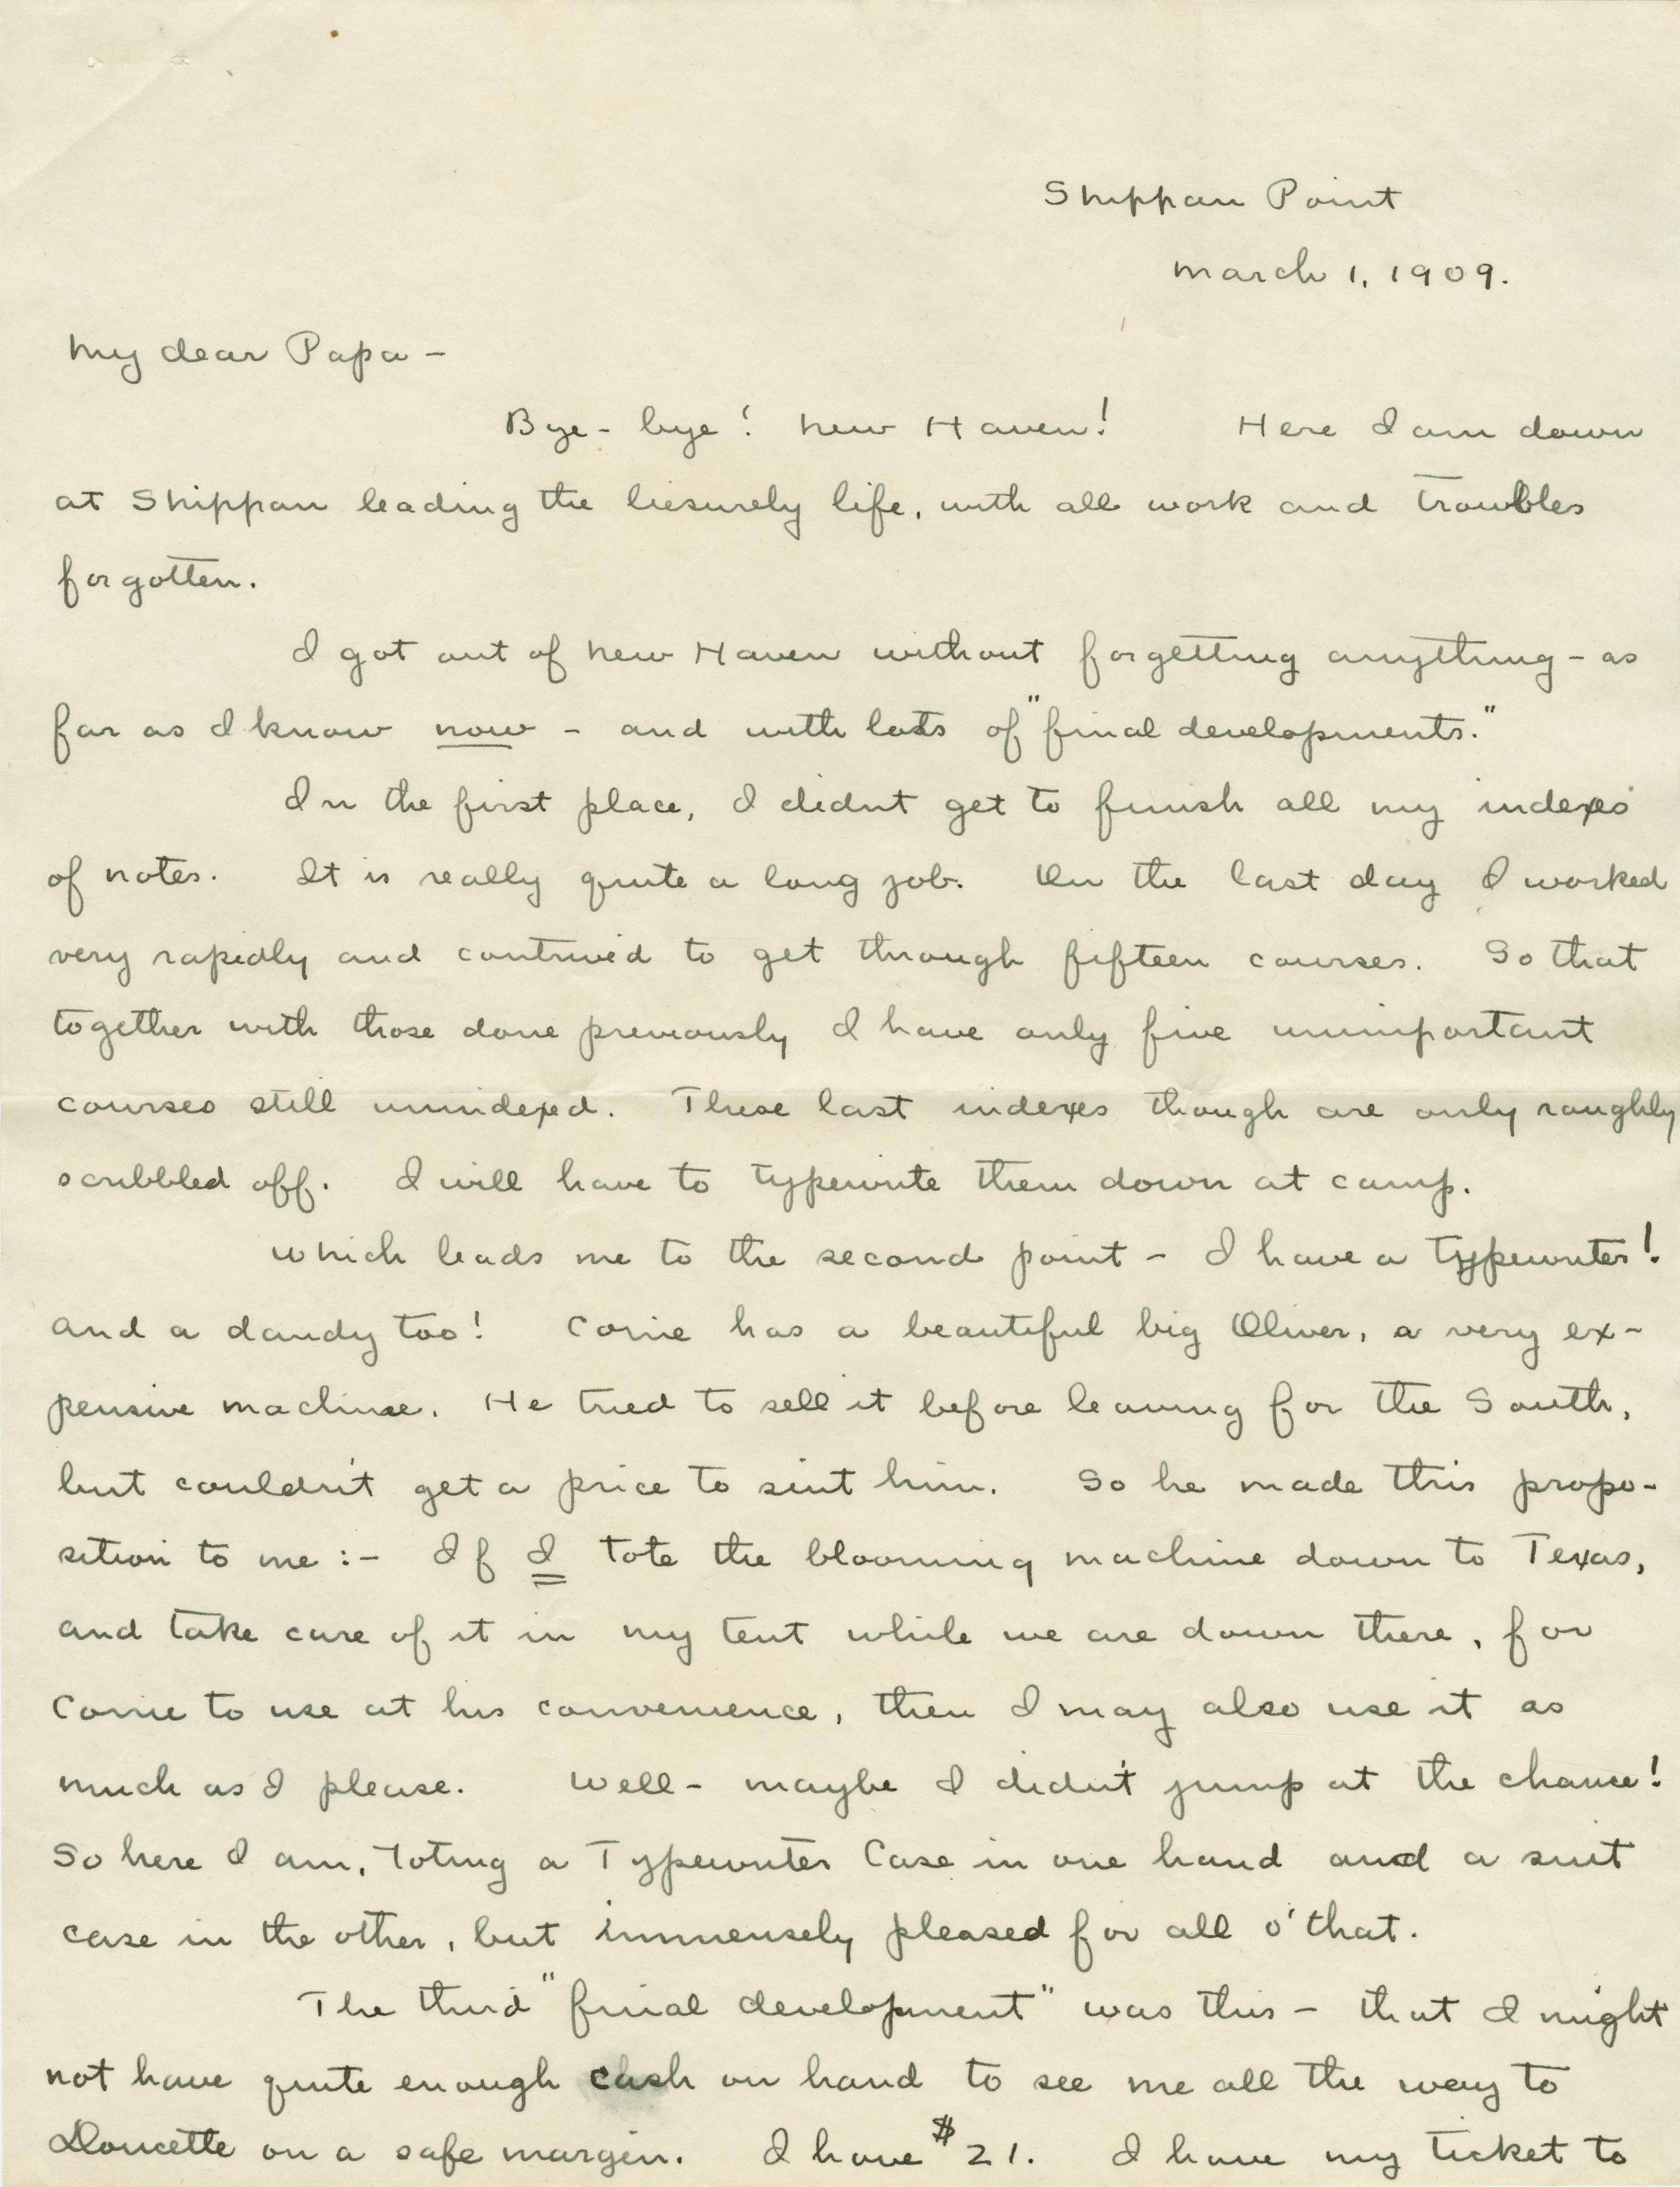 Shippan Point
March 1, 1909.
My dear Papa -
Bye-bye! New Haven! Here I am down
at Shippan leading the liesurely life, with all work and troubles
forgotten.
I got out of New Haven without forgetting anything - as
far as I know now - and with lots of "final developments."
In the first place, I didnt get to finish all my indexes
of notes. It is really quite a long job. On the last day I worked
very rapidly and contrived to get through fifteen courses. So that
together with those done previously I have only five unimportant
courses still unindexed. These last indexes though are only roughly
scribbled off. I will have to typewrite them down at camp.
Which leads me to the second point - I have a typewriter!
And a dandy too! Corie has a beautiful big Oliver, a very ex-
pensive machine. He tried to sell it before leaving for the South,
but couldn't get a price to suit him. So he made this propo-
sition to me :- If I tote the blooming machine down to Texas,
and take care of it in my tent while we are down there, for
Corrie to use at his convenience, then I may also use it as
much as I please. Well - maybe I didn't jump at the chance!
So here I am, toting a Typewriter Case in one hand and a suit
case in the other, but immensely pleased for all o' that.
The third "final development" was this - that I might
not have quite enough cash on hand to see me all the way to
Doucette on a safe margin. I have $21. I have my ticket to